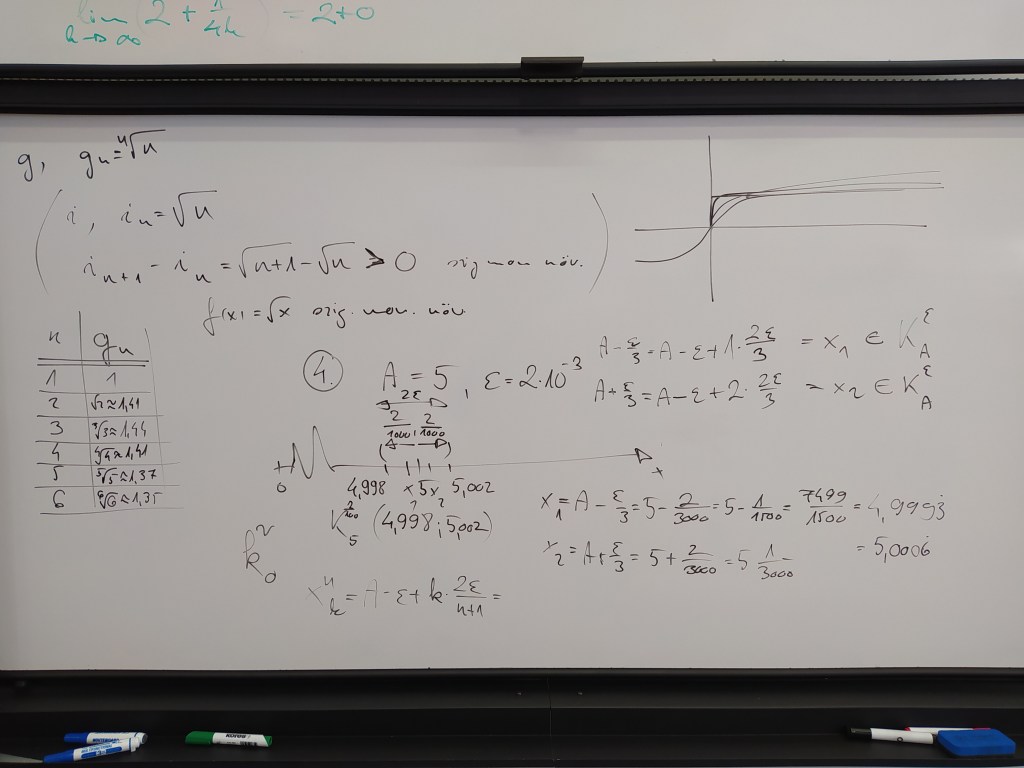 lim (2 + 1/4k) = 2+0
k→∞
g, gₙ = ⁿ√n
( i, iₙ = √n
iₙ₊₁ - iₙ = √n+1 - √n > 0 szig mon növ. )
f(x) = √x szig. mon. növ.
n | gₙ
1 | 1
2 | √2 ≈ 1,41
3 | ³√3 ≈ 1,44
4 | ⁴√4 ≈ 1,41
5 | ⁵√5 ≈ 1,37
6 | ⁶√6 ≈ 1,35
4. A = 5, ε = 2·10⁻³
2ε
2/1000 2/1000
0 4,998 x₁ 5 x₂ 5,002 +
(4,998 ; 5,002)
k₀²
xₖⁿ = A - ε + k · 2ε/n+1 =
A - ε/3 = A - ε + 1 · 2ε/3 = x₁ ∈ K_A^ε
A + ε/3 = A - ε + 2 · 2ε/3 = x₂ ∈ K_A^ε
x₁ = A - ε/3 = 5 - 2/3000 = 5 - 1/1500 = 7499/1500 = 4,9993̇
x₂ = A + ε/3 = 5 + 2/3000 = 5 1/3000 = 5,0006̇